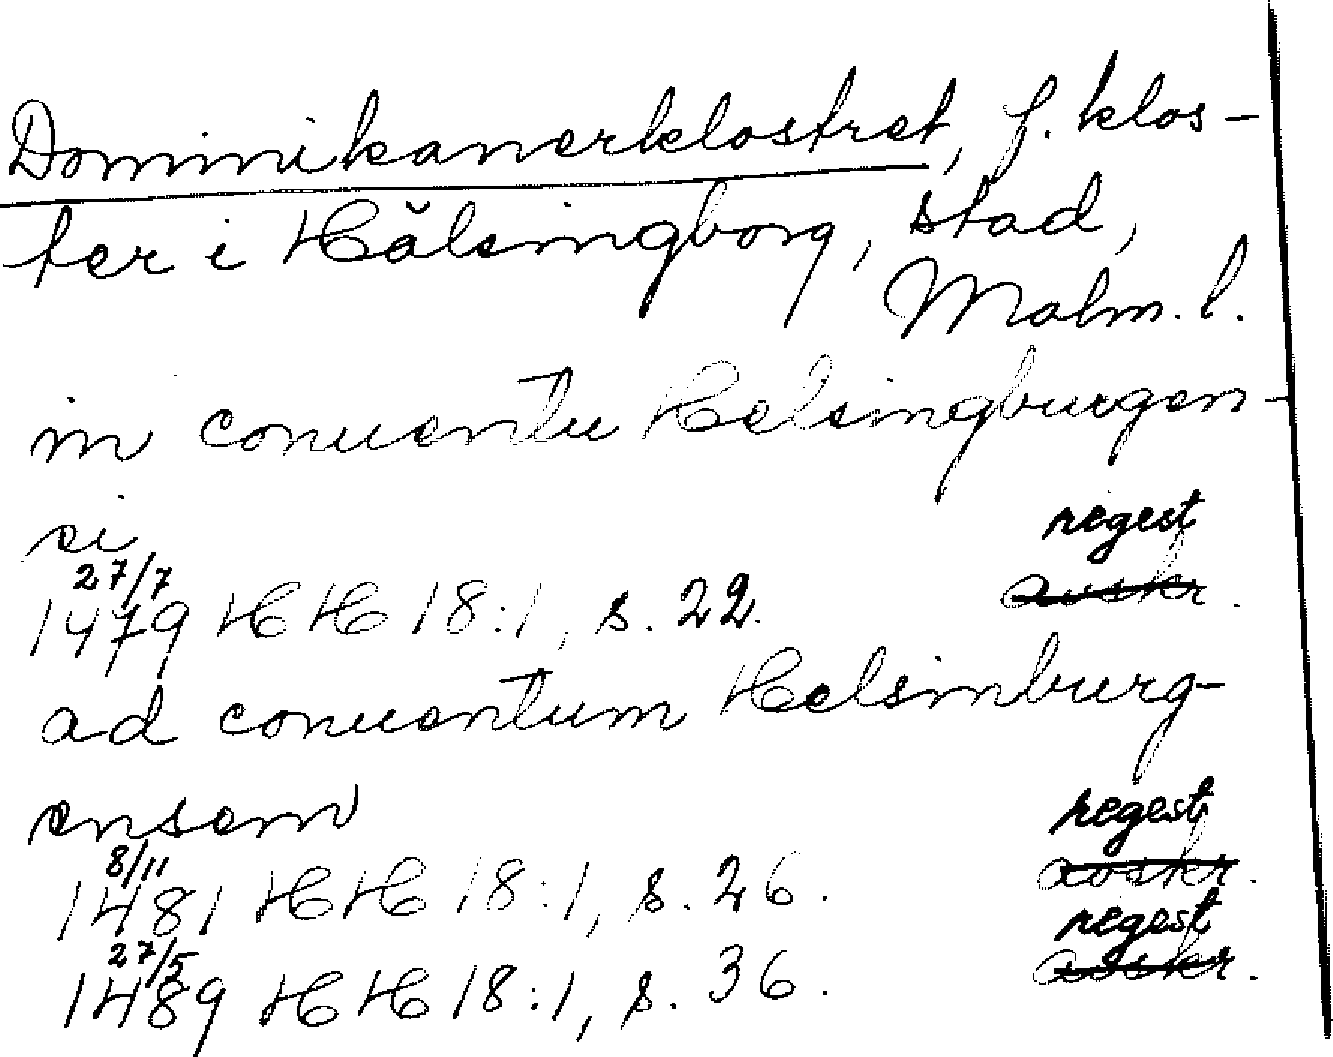 Dominikanerklostret, f. klos-
ter i Hälsingborg, stad,
Malm. l.
in conuentu Helsingburgen-
si
regest
27/7
1479 HH 18:1, s. 22. avskr.
ad conuentum Helsinburg-
ensem
regest
8/11
1481 HH 18:1, s. 26. avskr.
regest
27/5
1489 HH 18:1, s. 36. avskr.